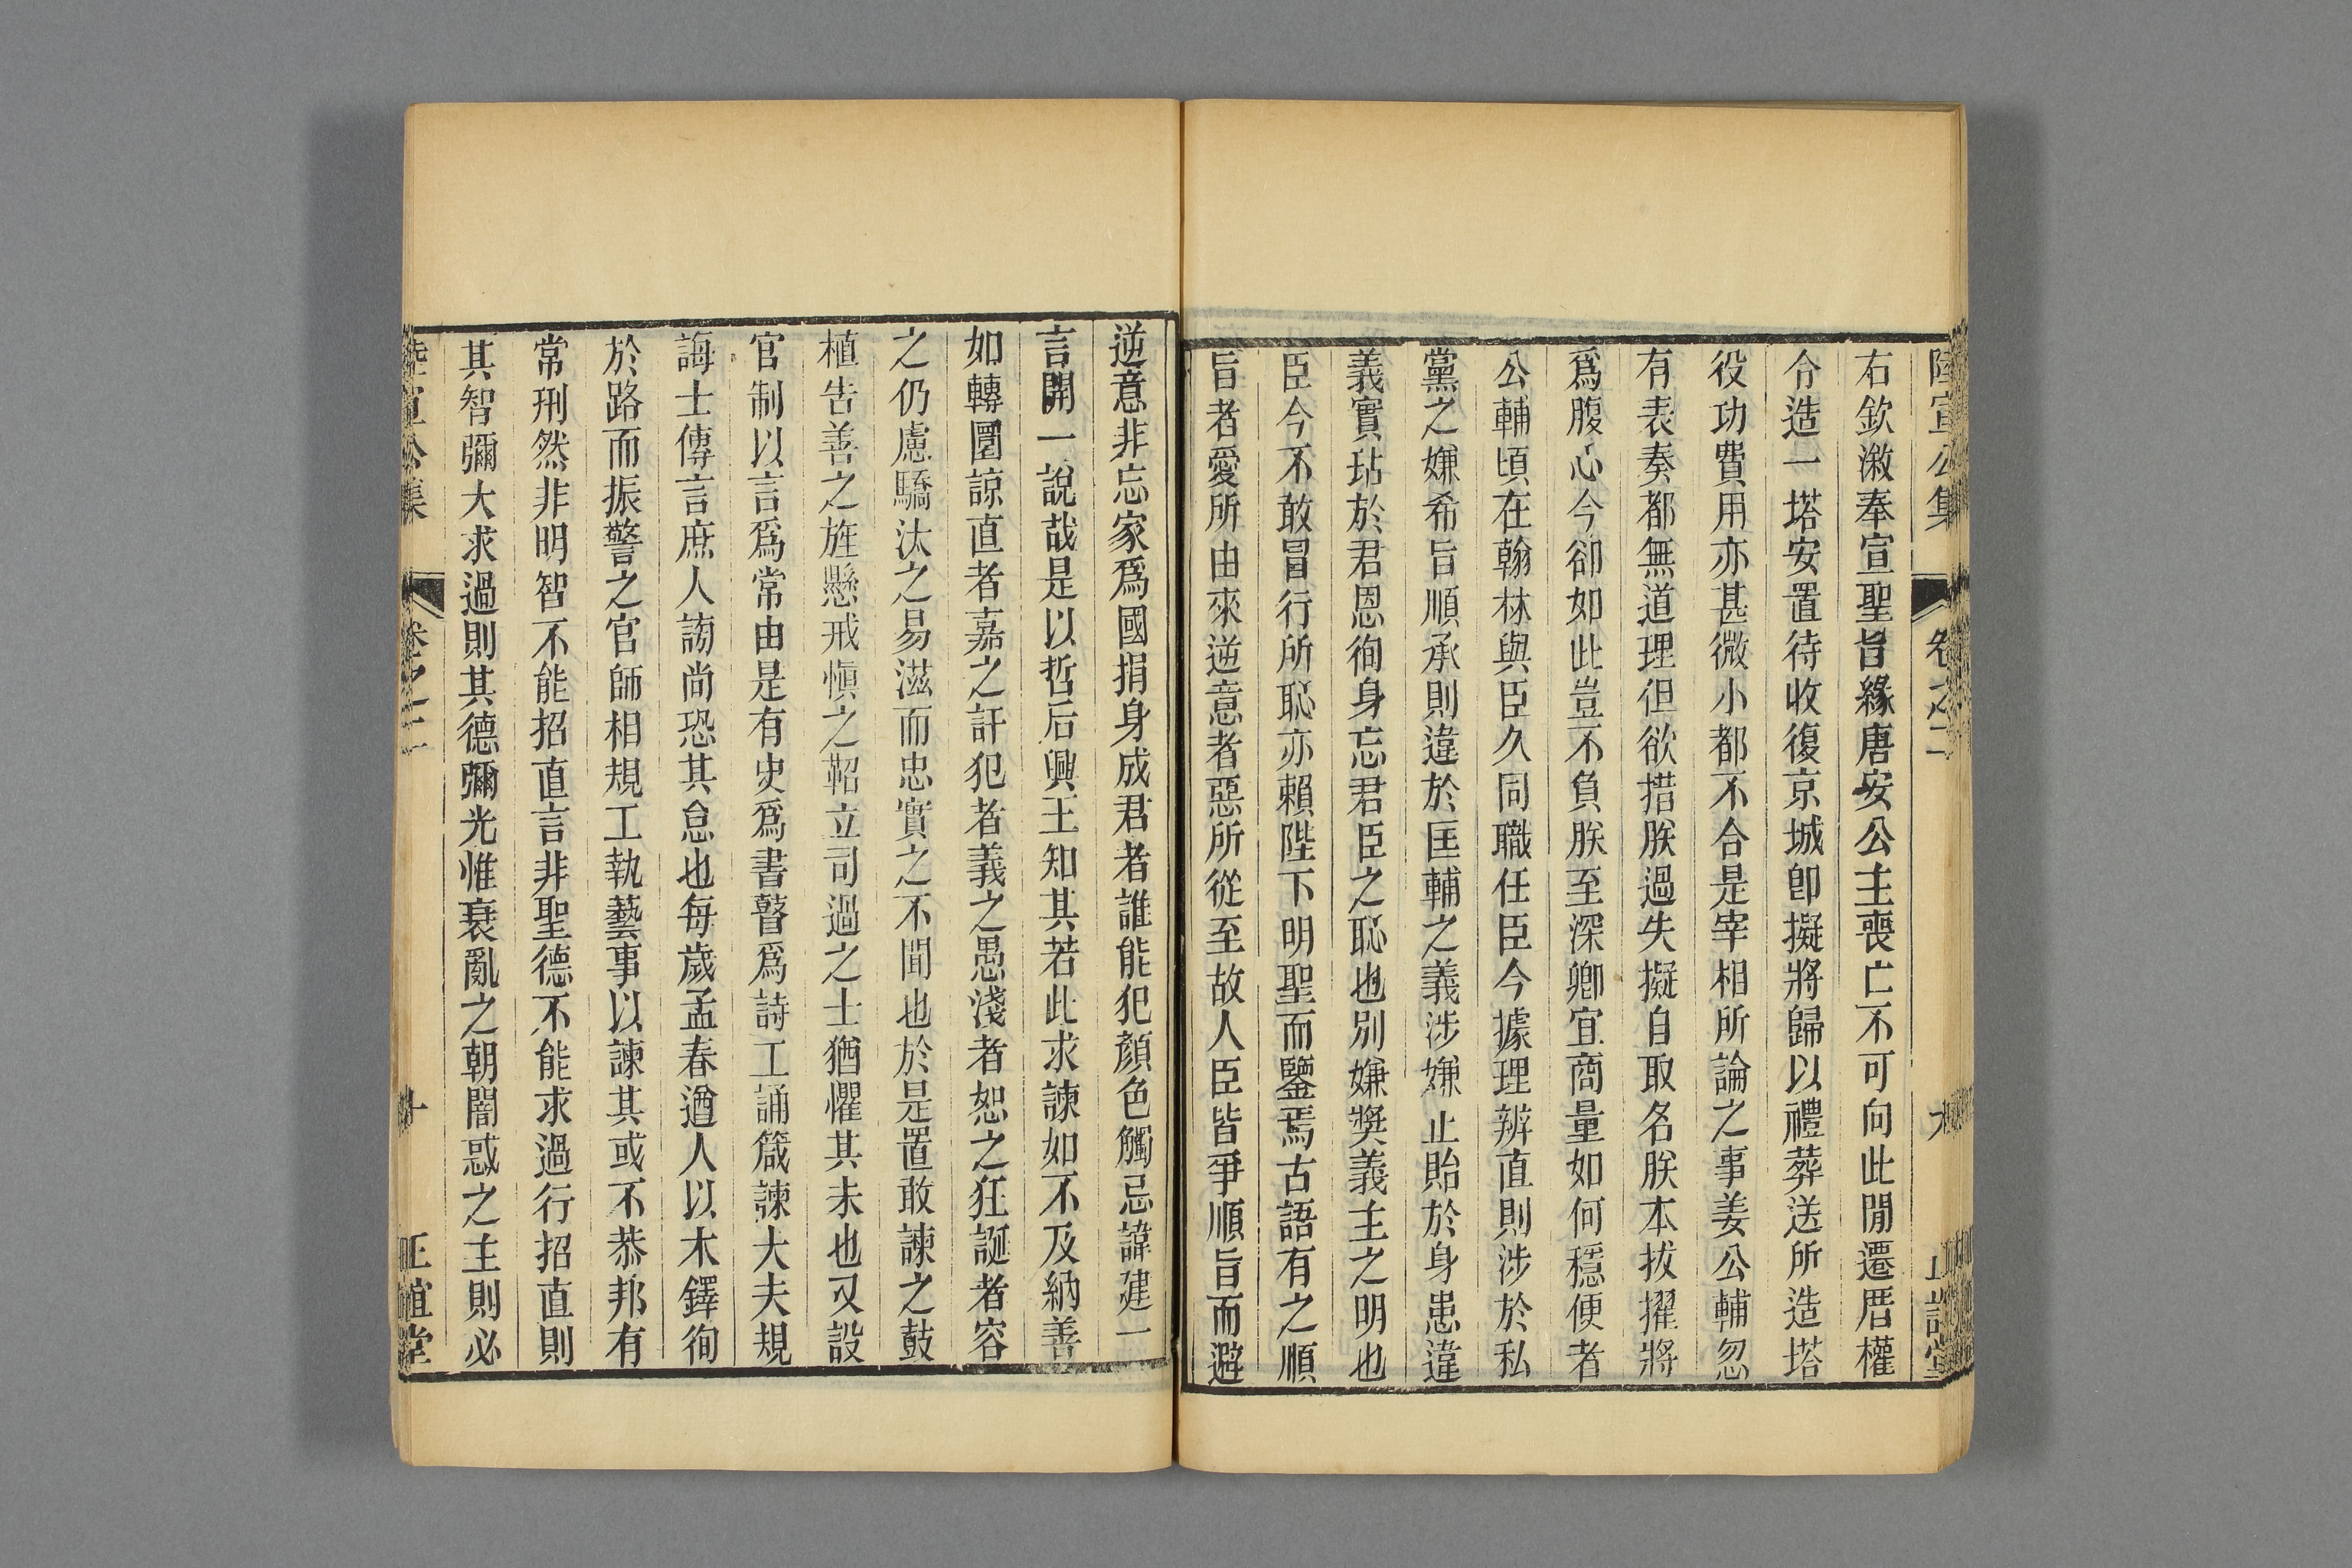 陸宣公集 卷之二 九 正誼堂
右欽漵奉宣聖旨緣唐安公主喪亡不可向此閒遷厝權
令造一塔安置待收復京城卽擬將歸以禮葬送所造塔
役功費用亦甚微小都不合是宰相所論之事姜公輔忽
有表奏都無道理但欲措朕過失擬自取名朕本拔擢將
爲腹心今卻如此豈不負朕至深卿宜商量如何穩便者
公輔頃在翰林與臣久同職任臣今據理辨直則涉於私
黨之嫌希旨順承則違於匡輔之義涉嫌止貽於身患違
義實玷於君恩徇身忘君臣之恥也別嫌獎義主之明也
臣今不敢冒行所恥亦賴陛下明聖而鑒焉古語有之順
旨者愛所由來逆意者惡所從至故人臣皆爭順旨而避
逆意非忘家爲國捐身成君者誰能犯顏色觸忌諱建一
言開一說哉是以哲后興王知其若此求諫如不及納善
如轉圜諒直者嘉之訐犯者義之愚淺者恕之狂誕者容
之仍慮驕汰之易滋而忠實之不聞也於是置敢諫之鼓
植告善之旌懸戒愼之鞀立司過之士猶懼其未也又設
官制以言爲常由是有史爲書瞽爲詩工誦箴諫大夫規
誨士傳言庶人謗尚恐其怠也每歲孟春遒人以木鐸徇
於路而振警之官師相規工執藝事以諫其或不恭邦有
常刑然非明智不能招直言非聖德不能求過行招直則
其智彌大求過則其德彌光惟衰亂之朝闇惑之主則必
陸宣公集 卷之二 十 正誼堂